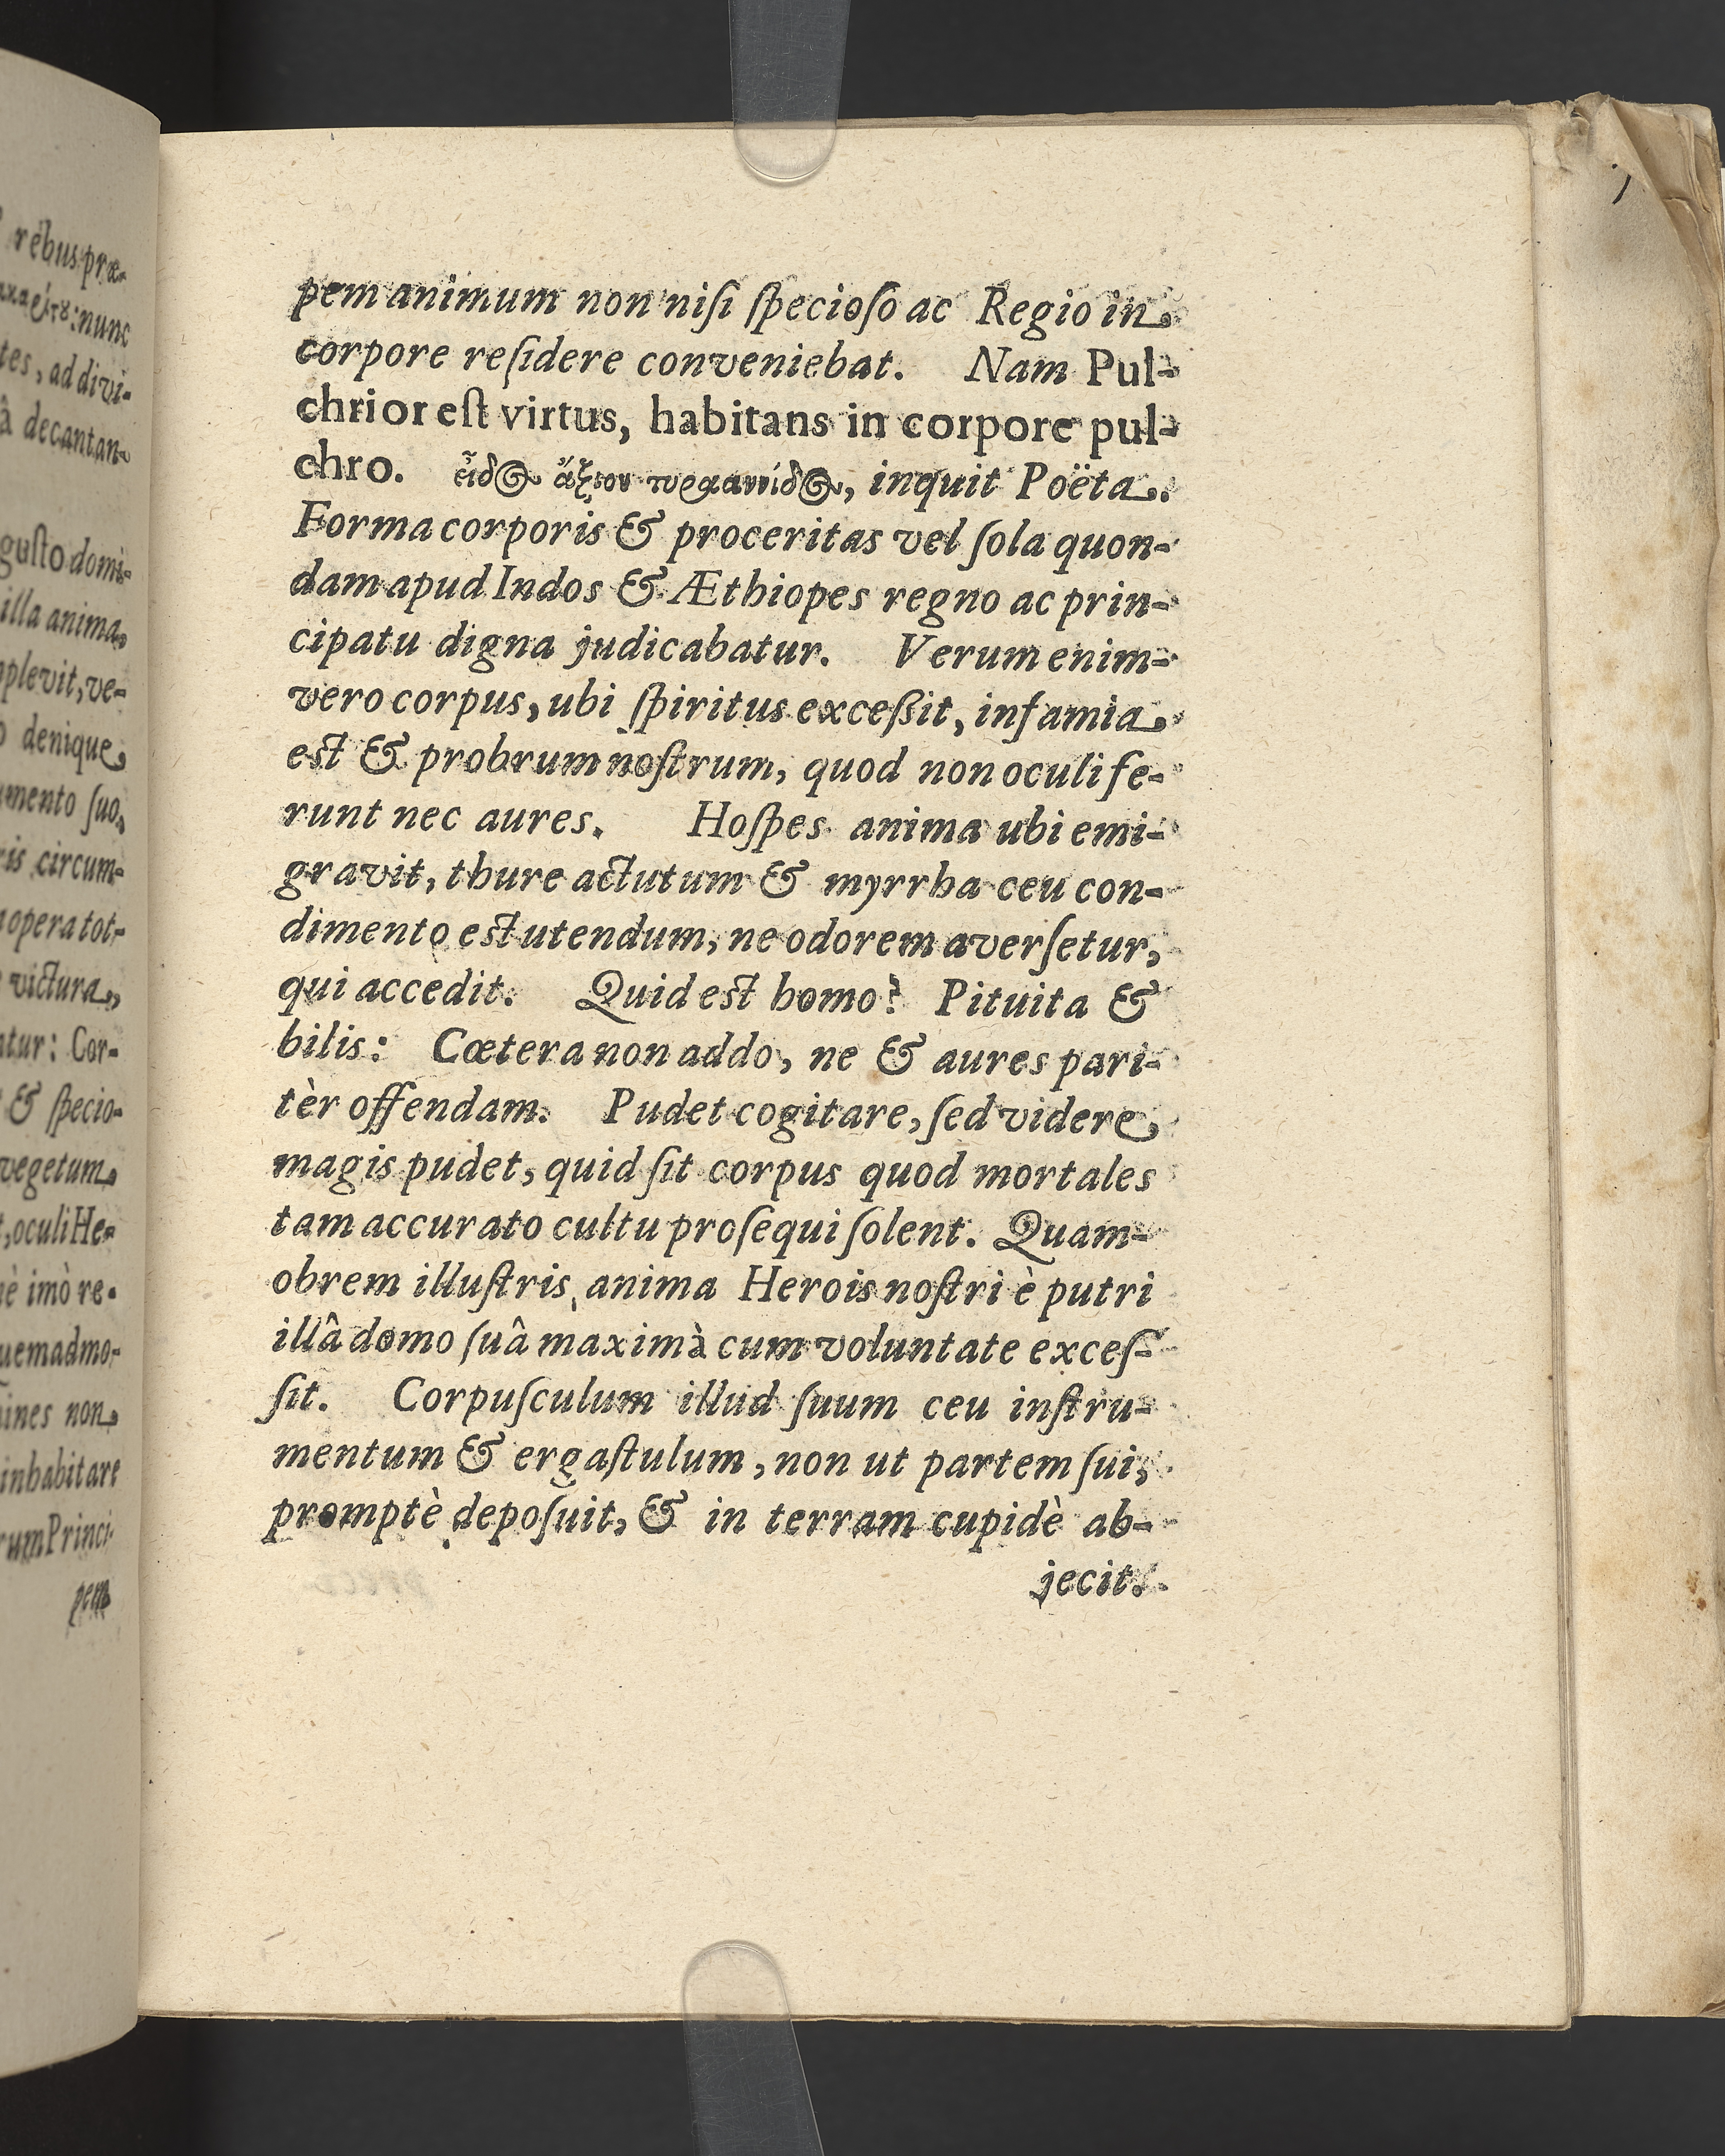 rebus præ-
nunc
tes, ad divi-
â decantan-
gusto domi-
illa anima
plevit, ve-
denique
mento ſuo,
ris circum-
opera tot-
victura,
tur: Cor-
& ſpecio-
vegetum
, oculi He-
è imò re-
uemadmo-
ines non
inhabitare
rum Princi-
pem
pem animum non niſi ſpecioſo ac Regio in
corpore reſidere conveniebat. Nam Pul-
chrior eſt virtus, habitans in corpore pul-
chro. εἶδος ἄξιον τυραννίδος, inquit Poëta.
Forma corporis & proceritas vel ſola quon-
dam apud Indos & Æthiopes regno ac prin-
cipatu digna judicabatur. Verum enim-
vero corpus, ubi ſpiritus exceßit, infamia
eſt & probrum noſtrum, quod non oculi fe-
runt nec aures. Hoſpes anima ubi emi-
gravit, thure actutum & myrrha ceu con-
dimento eſt utendum, ne odorem averſetur,
qui accedit. Quid eſt homo? Pituita &
bilis: Cœtera non addo, ne & aures pari-
tèr offendam. Pudet cogitare, ſed videre
magis pudet, quid ſit corpus quod mortales
tam accurato cultu proſequi ſolent. Quam-
obrem illuſtris anima Herois noſtri è putri
illâ domo ſuâ maximà cum voluntate exceſ-
ſit. Corpuſculum illud ſuum ceu inſtru-
mentum & ergaſtulum, non ut partem ſui,
promptè depoſuit, & in terram cupidè ab-
jecit.